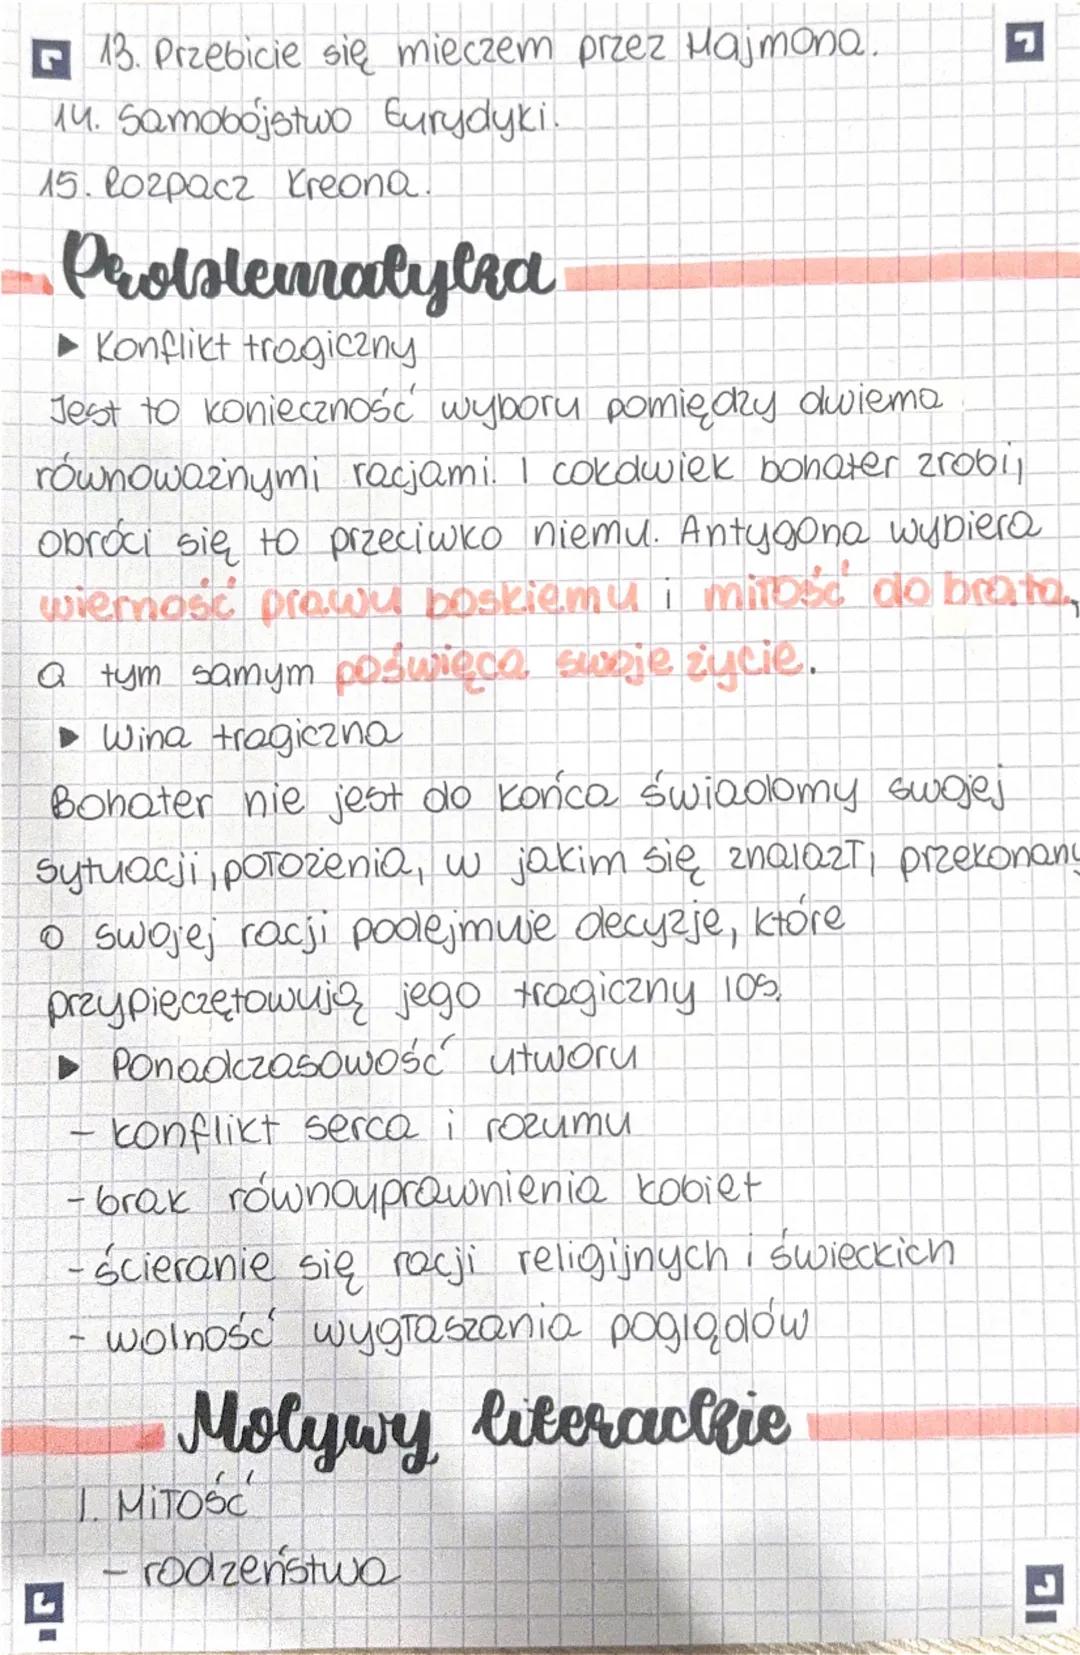 13. Przebicie się mieczem przez Hajmona.
14. Samobójstwo Eurydyki.
15. Rozpacz Kreona.
Problematyka
▶ Konflikt tragiczny
Jest to konieczność wyboru pomiędzy dwiema
równoważnymi racjami. I cokolwiek bohater zrobi,
obróci się to przeciwko niemu. Antygona wybiera
wierność prawu boskiemu i miłość do brata,
a tym samym poświęca swoje życie.
▶ Wina tragiczna
Bohater nie jest do końca świadomy swojej
sytuacji, położenia, w jakim się znalazł, przekonany
o swojej racji podejmuje decyzje, które
przypieczętowują jego tragiczny los.
▶ Ponadczasowość utworu
- konflikt serca i rozumu
- brak równouprawnienia kobiet
- ścieranie się racji religijnych i świeckich
- wolność wygłaszania poglądów
Motywy literackie
1. Miłość
- rodzeństwa